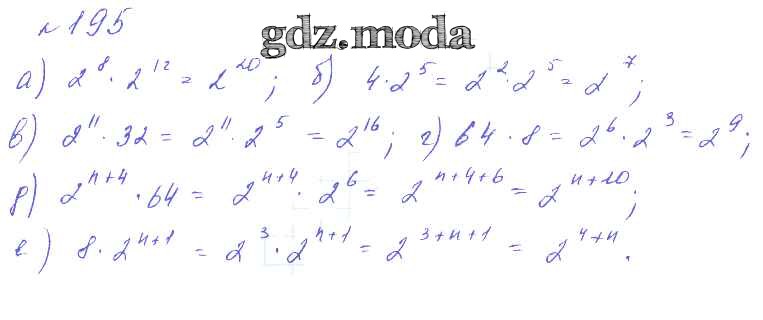 №195
gdz.moda
а) 2⁸·2¹² = 2²⁰; б) 4·2⁵ = 2²·2⁵ = 2⁷;
в) 2¹¹·32 = 2¹¹·2⁵ = 2¹⁶; г) 64·8 = 2⁶·2³ = 2⁹;
д) 2ⁿ⁺⁴·64 = 2ⁿ⁺⁴·2⁶ = 2ⁿ⁺⁴⁺⁶ = 2ⁿ⁺¹⁰;
е) 8·2ⁿ⁺¹ = 2³·2ⁿ⁺¹ = 2³⁺ⁿ⁺¹ = 2⁴⁺ⁿ.